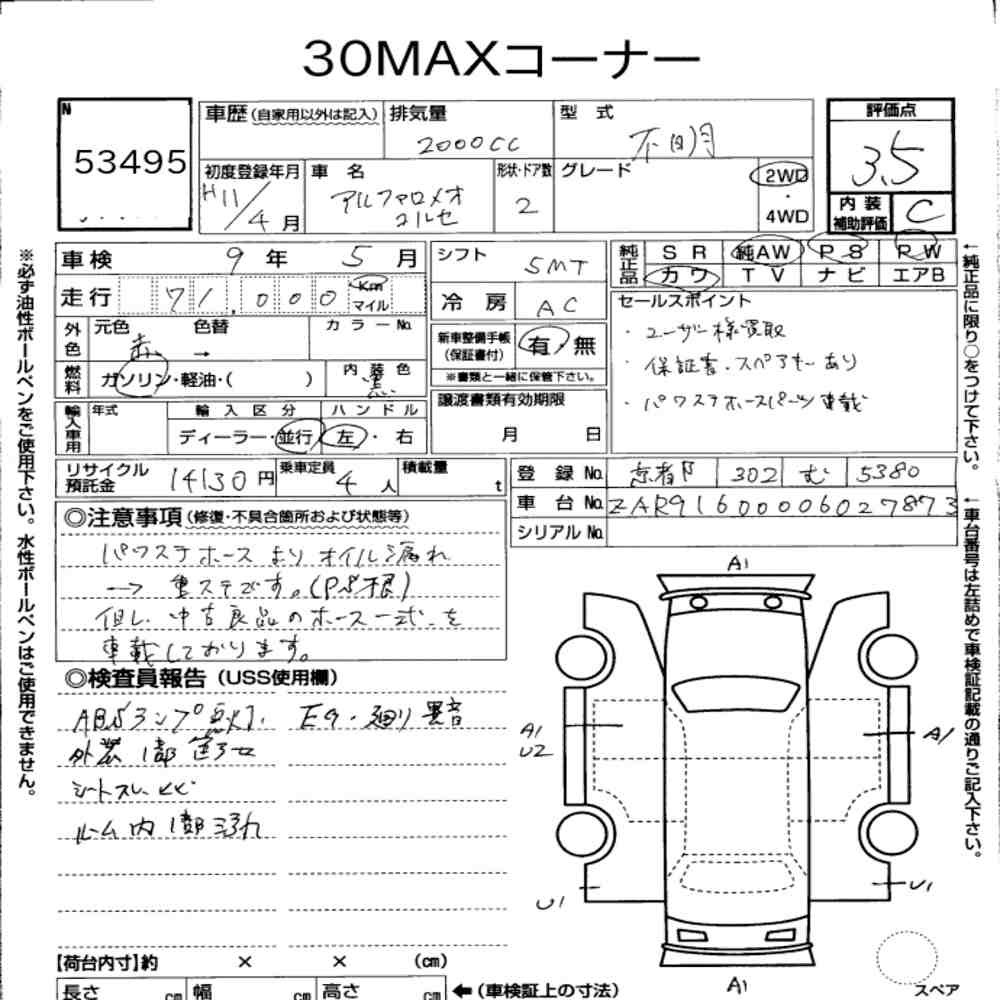 30MAXコーナー
N
53495
車歴(自家用以外は記入) 排気量 2000CC 型 式 不明
初度登録年月 H11/4月 車 名 アルファロメオ 形状・ドア数 2 グレード 2WD・4WD
評価点 3.5
内装補助評価 C
車検 9年 5月
走行 71,000 Km マイル
外色 元色 赤 色替 → カラーNo.
燃料 ガソリン・軽油・( ) 内装色 黒
輸入車用 年式 輸入区分 ディーラー・並行 ハンドル 左・右
シフト 5MT
冷房 AC
新車整備手帳(保証書付) 有・無
※書類と一緒に保管下さい。
譲渡書類有効期限
月 日
純正品 SR 純AW PS PW
カワ TV ナビ エアB
セールスポイント
・ユーザー様買取
・保証書、スペアキーあり
・パワステホースパーツ車載
リサイクル預託金 14130円 乗車定員 4人 積載量 t
登録No. 京都 302 む 5380
車台No. ZAR91600006027873
シリアルNo.
◎注意事項(修復・不具合箇所および状態等)
パワステホースよりオイル漏れ
→ 重ステです。(PS損)
但し、中古良品のホース一式を
車載しております。
◎検査員報告(USS使用欄)
ABSランプ点灯、Eg・廻り異音
外装1部
シートスレ、
ルーム内1部汚れ
【荷台内寸】約 × × (cm)
長さ cm 幅 cm 高さ cm ←(車検証上の寸法)
A1
A1
U2
A1
U1
U1
A1
スペア
※必ず油性ボールペンをご使用下さい。水性ボールペンはご使用できません。
←純正品に限り○をつけて下さい。
←車台番号は左詰めで車検証記載の通りご記入下さい。